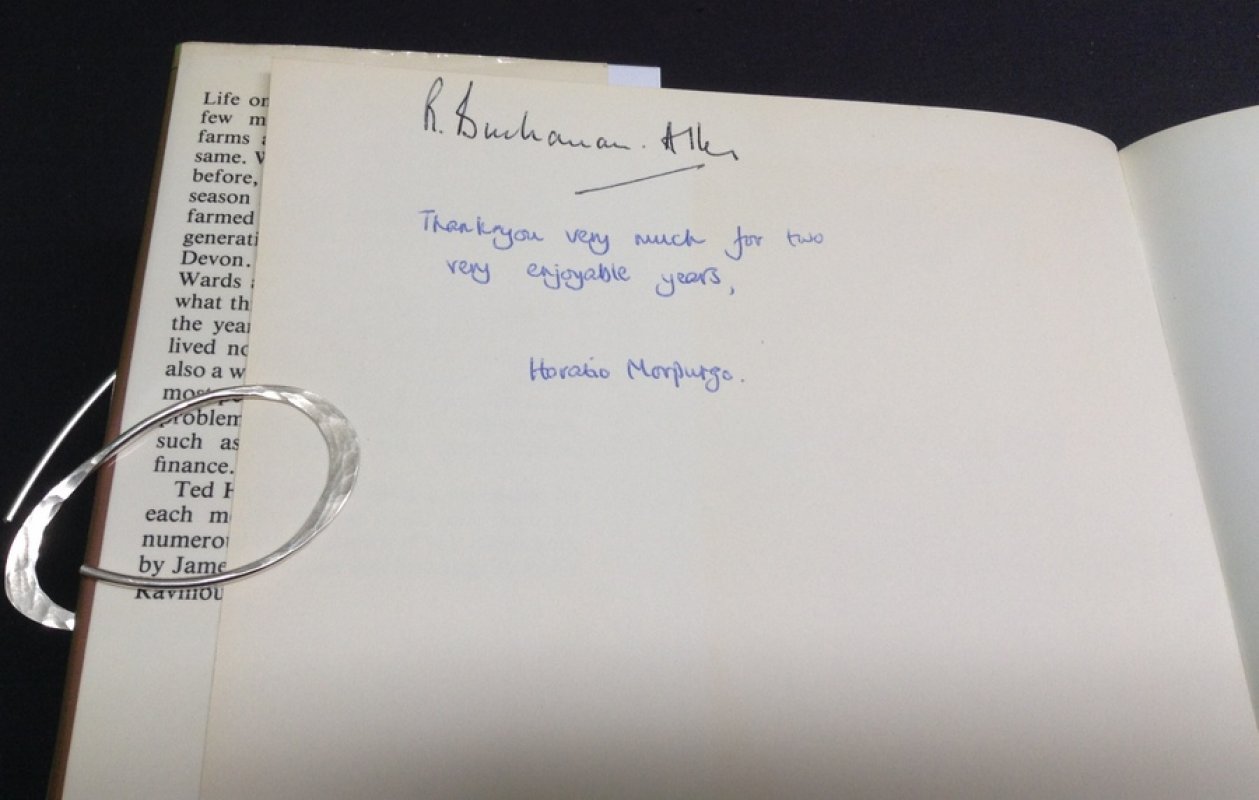 Life on
few m
farms a
same. W
before,
season
farmed
generati
Devon.
Wards a
what th
the year
lived no
also a w
most pe
problem
such as
finance.
Ted H
each m
numerou
by Jame
Raviliou
R. Buchanan. Allen
Thankyou very much for two
very enjoyable years,
Horatio Morpurgo.